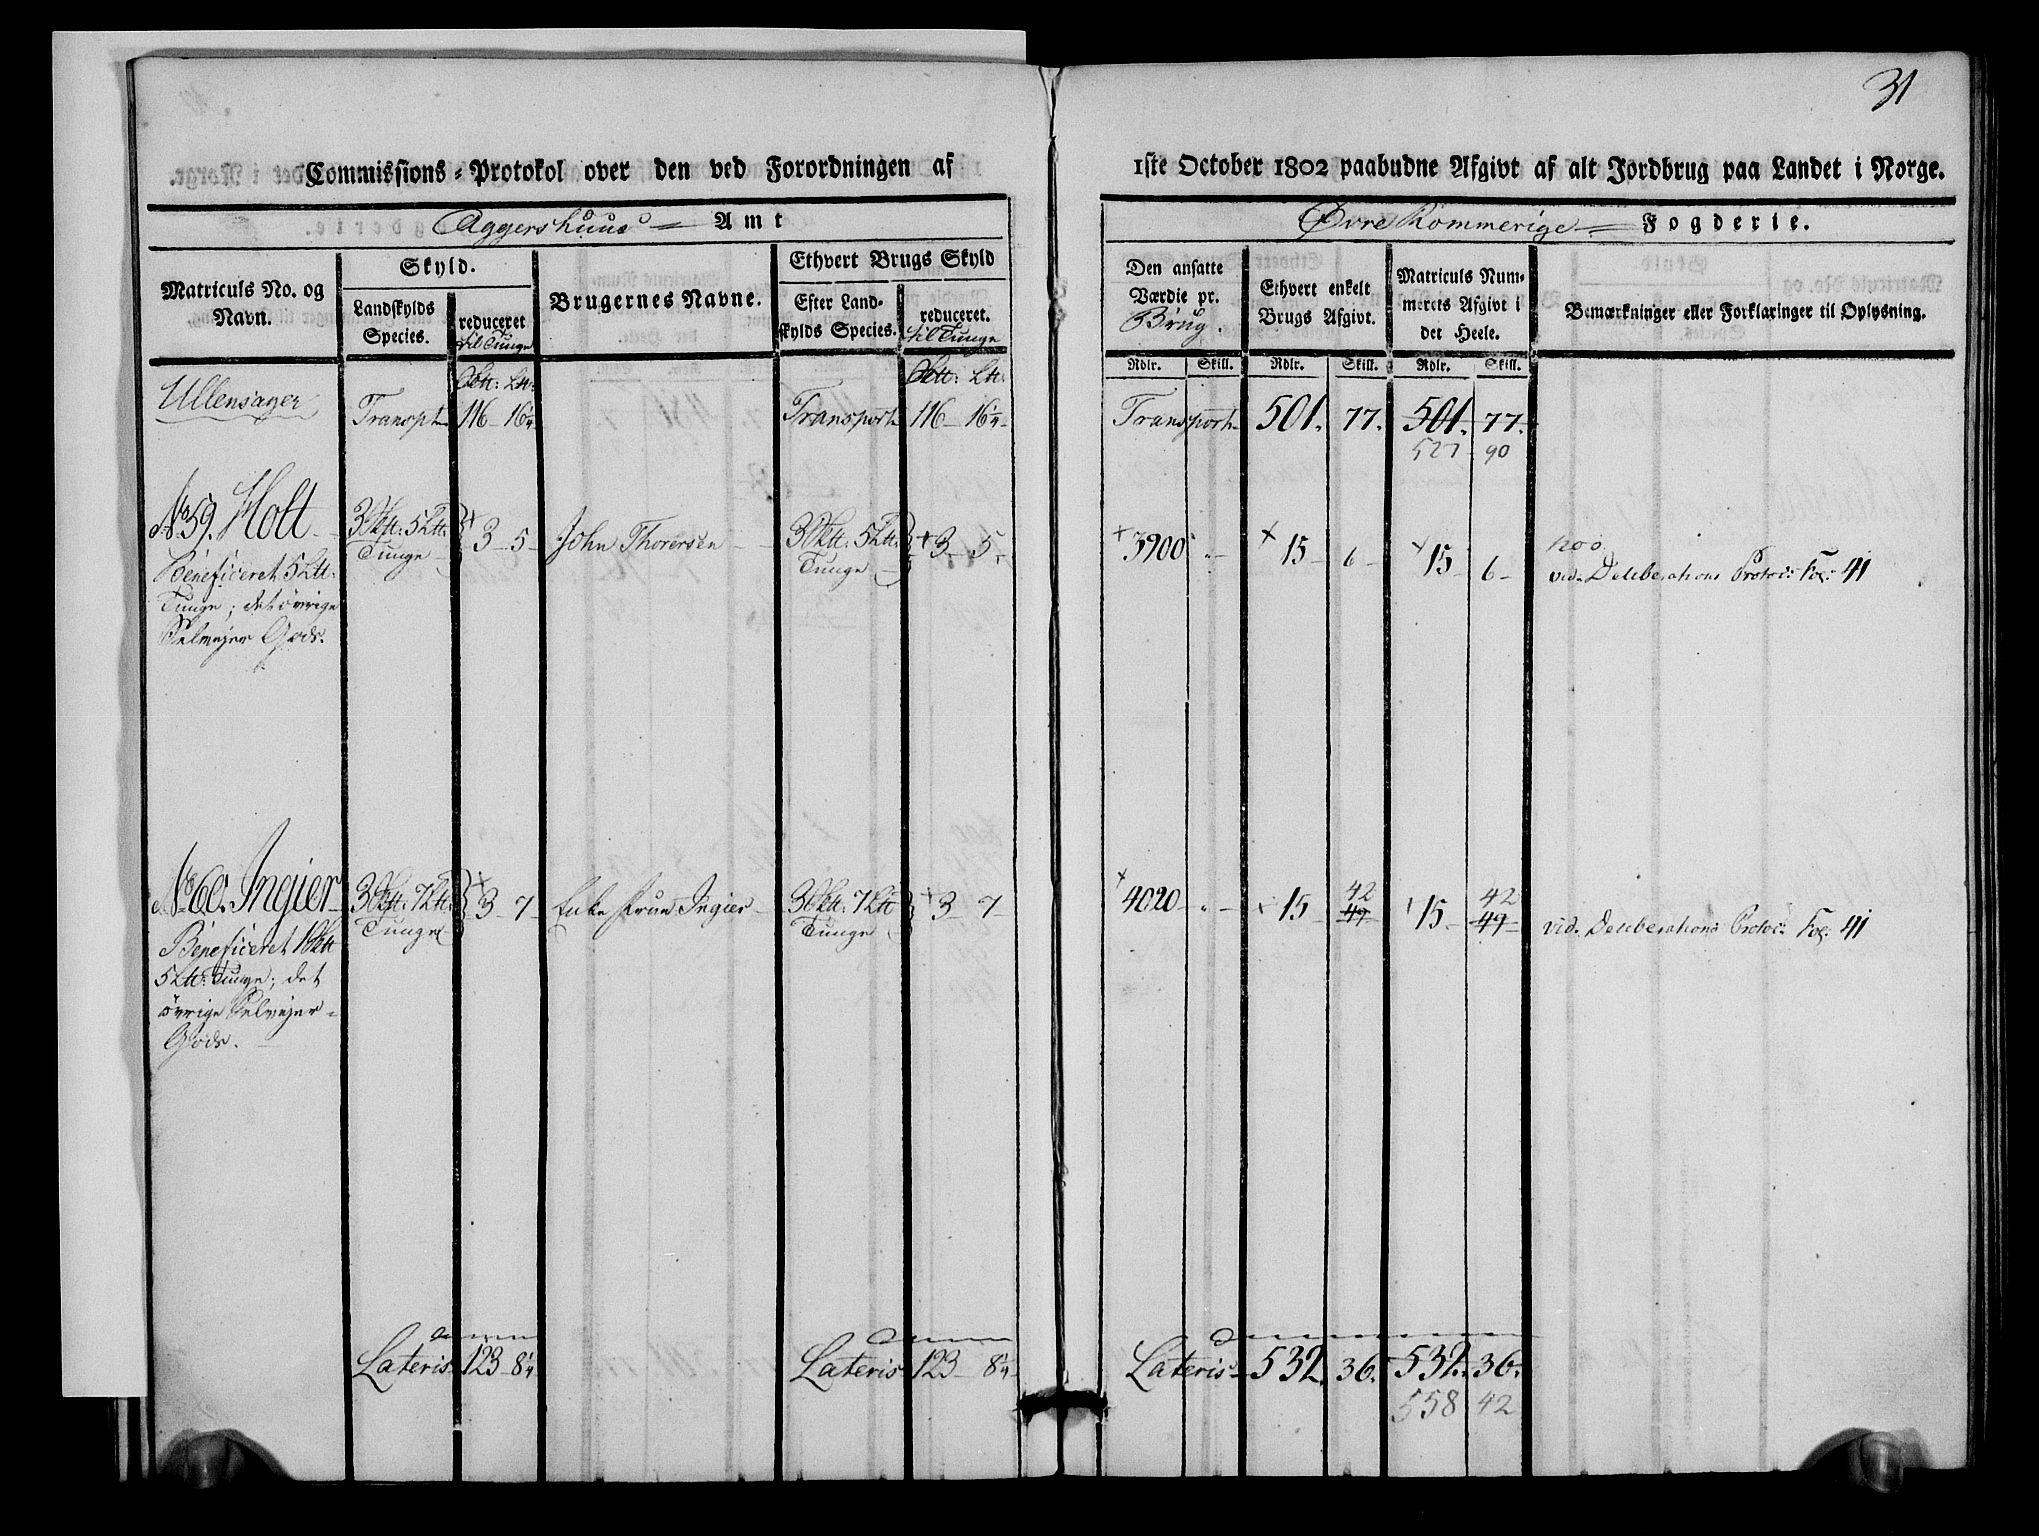 31
Commissions-Protokol over den ved Forordningen af
1ste October 1802 paabudne Afgivt af alt Jordbrug paa Landet i Norge.
Aggershuus Amt
Øvre Rommerige Fogderie.
Matriculs No. og Navn.
Skyld.
Landskylds Species.
reduceret til Tunge
Brugernes Navne.
Ethvert Brugs Skyld
Efter Landskylds Species.
reduceret. til Tunge
Den ansatte Værdie pr. Brug.
Ethvert enkelt Brugs Afgivt.
Matriculs Nummerets Afgivt i det Heele.
Bemærkninger eller Forklaringer til Oplysning.
Rdlr. Skill. Rdlr. Skill. Rdlr. Skill.
Ullensager
Transpt 116 16¼ Transport 116 16¼ Transport 501. 77. 501. 77.
527 90
No 59. Holt 3 5 John Thorersen 3 5 3900 15 6 15 6
Tunge Tunge
vid. Deliberations Protoc: Fol: 41
Beneficeret 5 Ltt:
Tunge; det övrige
Selvejer Gods.
No 60. Ingier 3 7 Enke Frue Ingier 3 7 4020 15 42 49 15 42 49
Tunge Tunge
vid. Deliberations Protoc: Fol: 41
Beneficeret 1
5 Ltt: Tunge; det
övrige Selvejer-
Gods.
Lateris 123 8¼ Lateris 123 8¼ Lateris 532. 36. 532. 36.
558 42